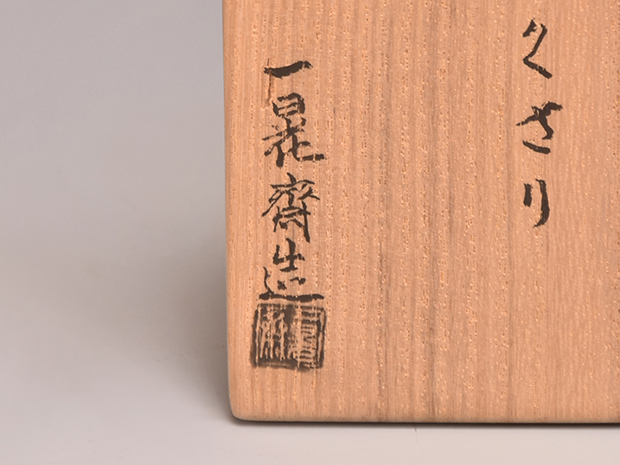 くさり
一晃齋造